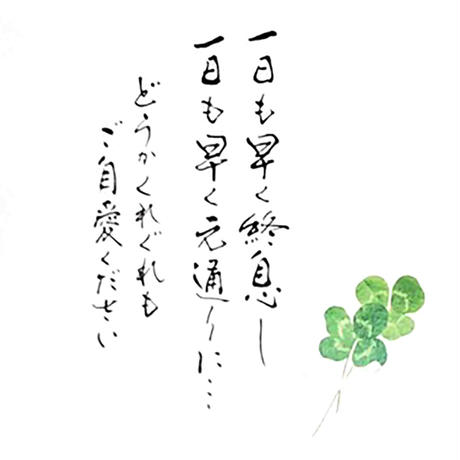 一日も早く終息し
一日も早く元通りに…
どうかくれぐれも
ご自愛ください